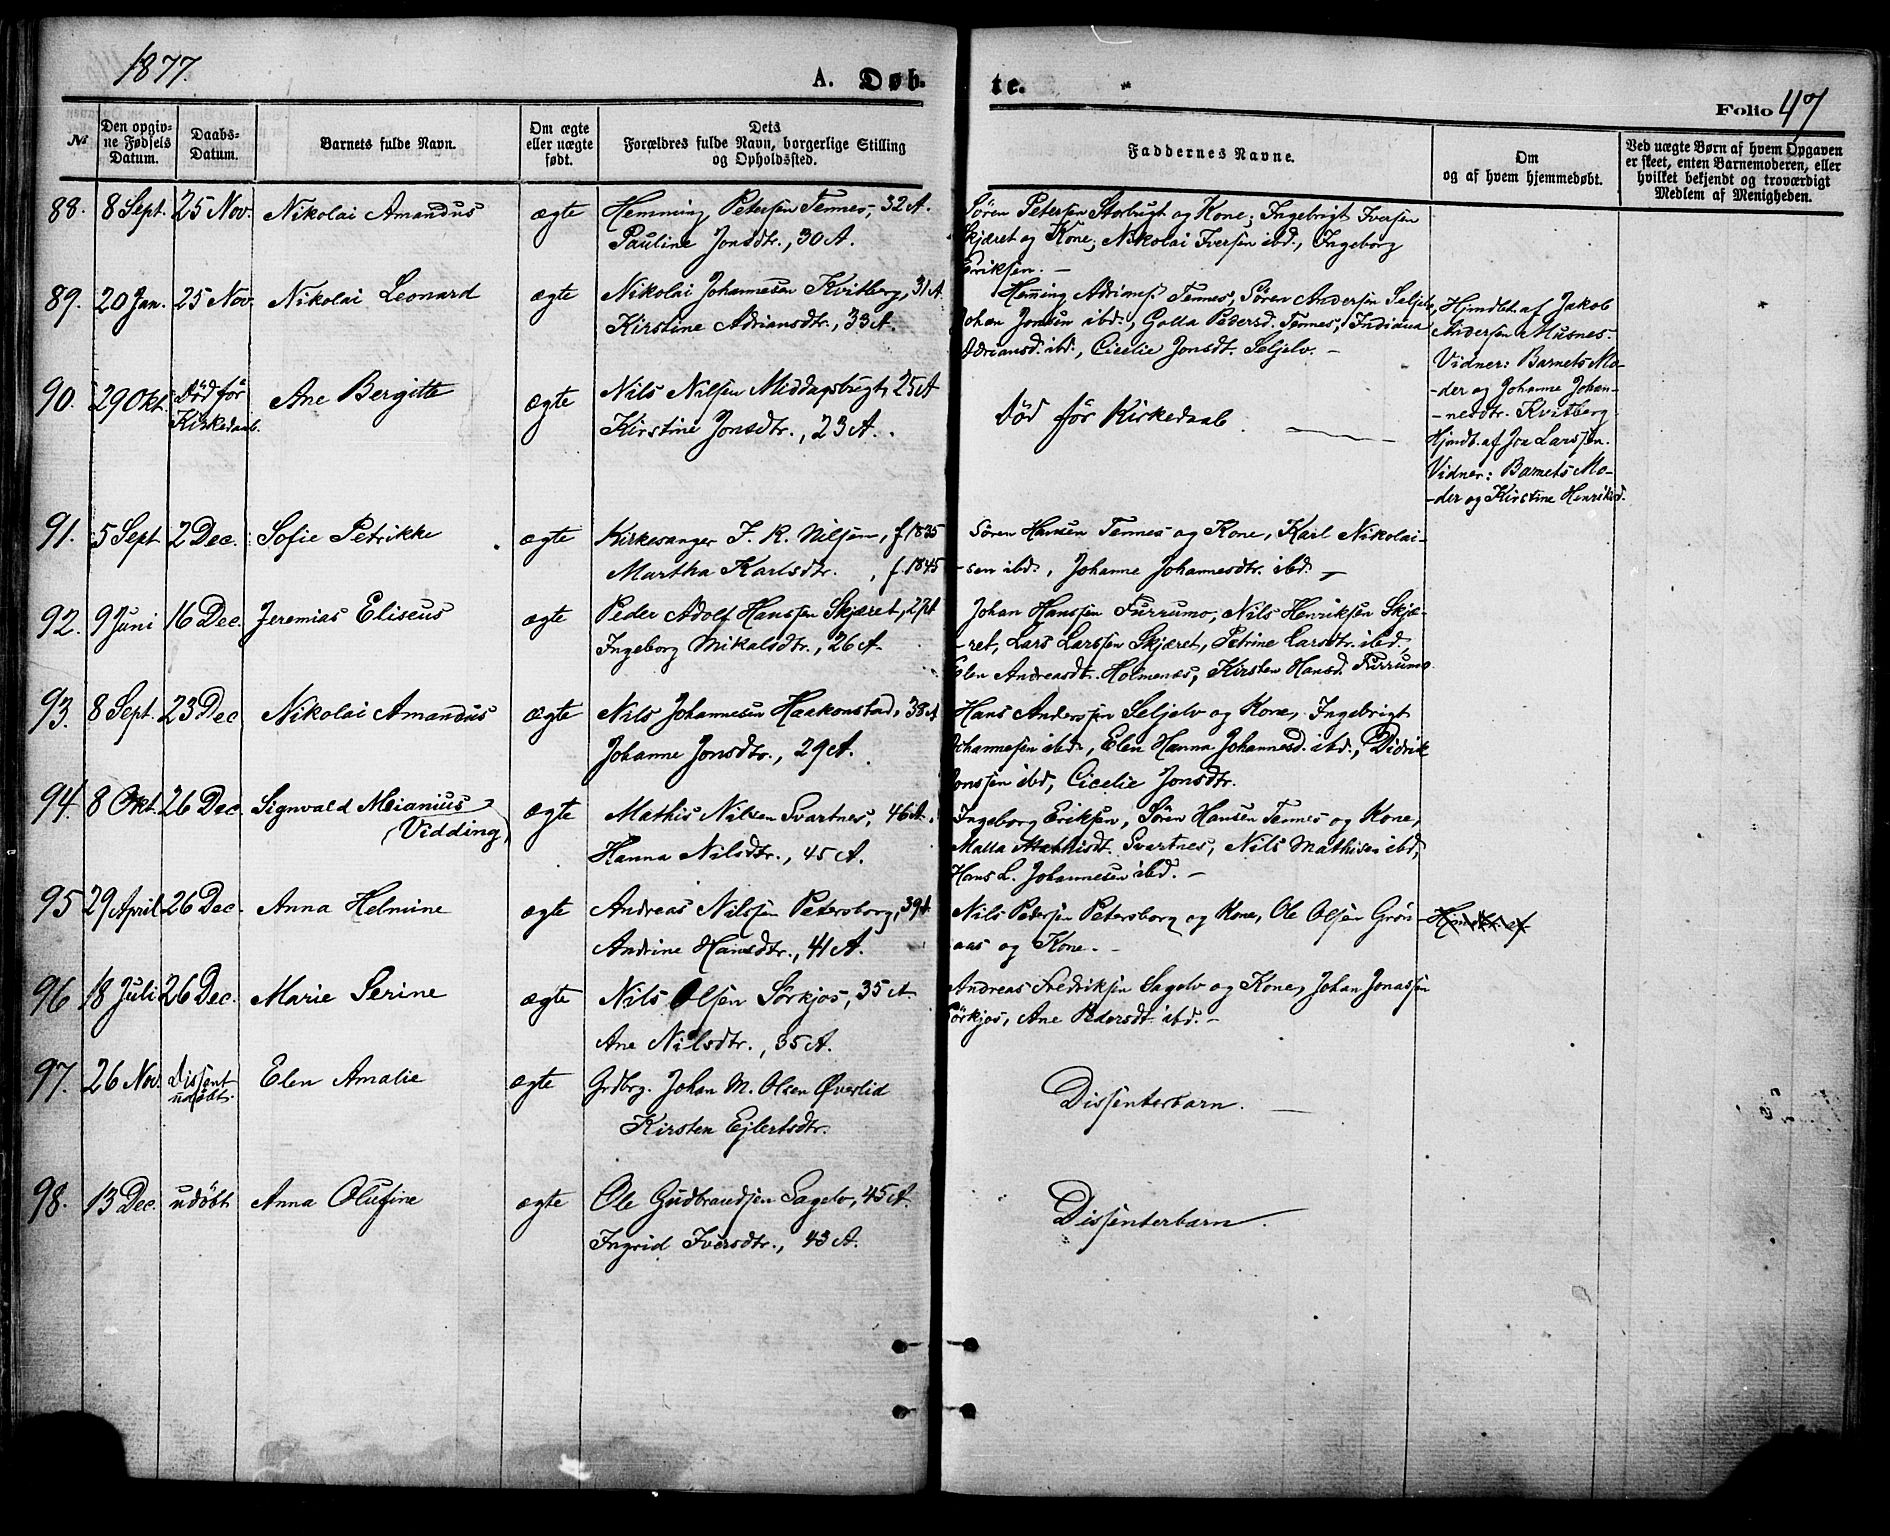 1877.
A. Døb-
te.
Folio 47
№
Den opgiv-
ne Fødsels
Datum.
Daabs-
Datum.
Barnets fulde Navn.
Om ægte
eller uægte
født.
Dets
Forældres fulde Navn, borgerlige Stilling
og Opholdssted.
Faddernes Navne.
Om
og af hvem hjemmedøbt.
Ved uægte Børn af hvem Opgaven
er skeet, enten Barnemoderen, eller
hvilket bekjendt og troværdigt
Medlem af Menigheden.
88. 8 Sept. 25 Nov. Nikolai Amandus ægte Hemming Petersen Tennes, 32 A.
Pauline Jonsdtr., 30 A.
Søren Petersen Storbugt og Kone; Ingebrigt Iversen
Skjæret og Kone; Nikolai Iversen ibd., Ingeborg
Eriksen. —
89. 20 Jan. 25 Nov. Nikolai Leonard ægte Nikolai Johannesen Kvitberg, 31 A
Kirstine Adriansdtr., 33 A.
Hemming Adrians. Tennes, Søren Andersen Seljelv,
Johan Jonsen ibd., Golla Pedersd. Tennes, Indiana
Adriansd. ibd., Cicelie Jonsdt. Seljelv. —
Hjmdbt. af Jakob
Andersen Musnes.
Vidner: Barnets Mo-
-der og Johanne Johan-
-nesdtr. Kvitberg
90. 29 Okt. Død før
Kirkedaab.
Ane Bergitte ægte Nils Nilsen Middagsbugt, 25 A
Kirstine Jonsdtr., 23 A.
Død før Kirkedaab.
Hjmdb. af Jon Larssen.
Vidner: Barnets Mo-
-der og Kirstine Henriksd.
91. 5 Sept 2 Dec. Sofie Petrikke ægte Kirkesanger J. R. Nilsen, f. 1835
Martha Karlsdtr., f. 1845
Søren Hansen Tennes og Kone, Karl Nikolai-
-sen ibd., Johanne Johannesdtr. ibd. —
92. 9 Juni 16 Dec. Jeremias Eliseus ægte Peder Adolf Hanssen Skjæret, 27 A
Ingeborg Mikalsdtr., 26 A.
Johan Hanssen Furrumo, Nils Henriksen Skjæ-
-ret, Lars Larssen Skjæret, Petrine Larsdtr. ibd.,
Elen Andreasdt. Holmenes, Kirsten Hansd. Furrumo
93. 8 Sept. 23 Dec Nikolai Amandus ægte Nils Johannesen Haakonstad, 38 A
Johanne Jonsdtr., 29 A.
Hans Anderssen Seljelv og Kone, Ingebrigt
Johannesen ibd., Elen Hanna Johannesd. ibd., Didrik
Jonssen ibd, Cicelie Jonsdtr.
94. 8 Okt. 26 Dec. Signvald Meianius
(Vidding)
ægte Mathis Nilsen Svartnes, 46 A.
Hanna Nilsdtr., 45 A.
Ingeborg Eriksen, Søren Hansen Tennes og Kone,
Malla Mathisdt. Svartnes, Nils Mathisen ibd,
Hans L. Johannesen ibd. —
95 29 April 26 Dec. Anna Helmine ægte Andreas Nilssen Petersborg, 39 A
Andrine Hansdtr., 41 A.
Nils Pedersen Petersborg og Kone, Ole Olsen Grøn-
aas og Kone. —
96 18 Juli 26 Dec. Marie Serine ægte Nils Olsen Sørkjos, 35 A.
Ane Nilsdtr., 35 A.
Andreas Fredriksen Sagelv og Kone, Johan Jonassen
Sørkjos, Ane Pedersdt. ibd. —
97. 26 Nov. Dissent
udøbt.
Elen Amalie ægte Grdbrg. Johan M. Olsen Øverlid
Kirsten Ejlertsdtr.
Dissenterbarn. —
98. 13 Dec. udøbt Anna Olufine ægte Ole Gudbrandsen Sagelv, 45 A.
Ingrid Iversdtr., 43 A.
Dissenterbarn.